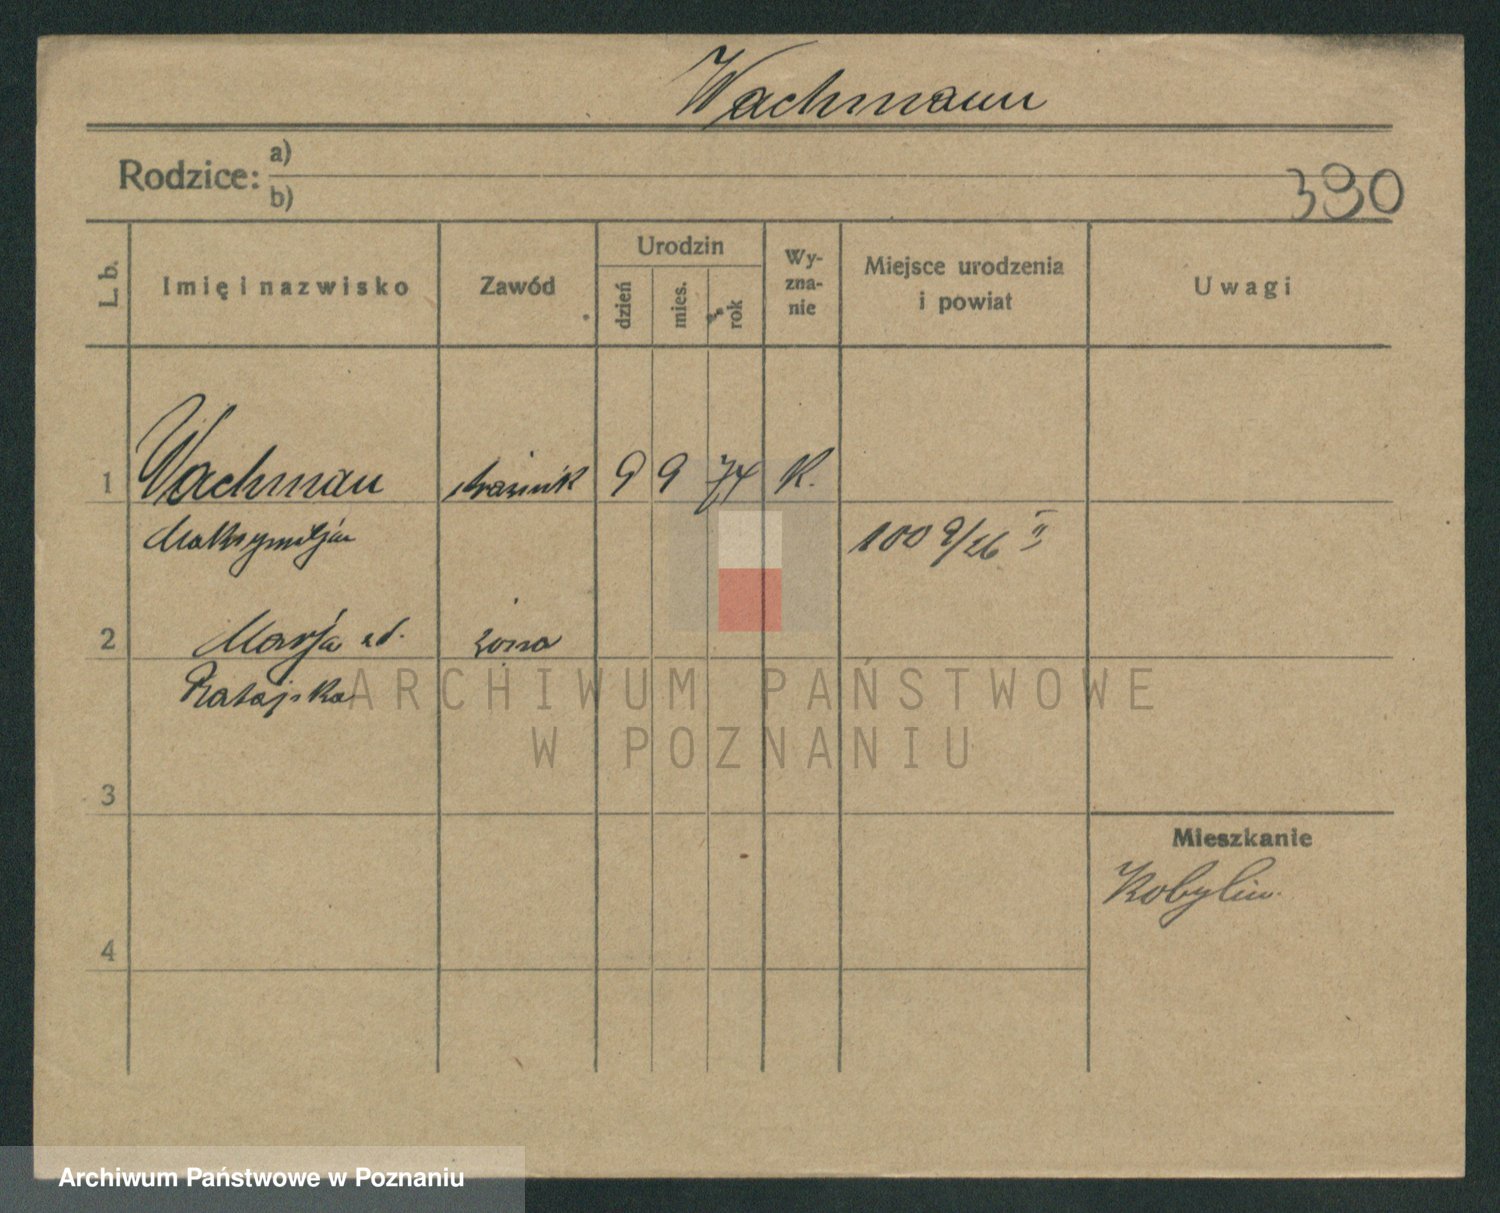 Wachmann
Rodzice: a)
b)
390
L. b. Imię i nazwisko Zawód Urodzin dzień mies. rok Wy-zna-nie Miejsce urodzenia i powiat Uwagi
1 Wachman 9 9 74 K.
Maksymiljan 100 9/26 II
2 Marja żona
Ratajska
ARCHIWUM PAŃSTWOWE
W POZNANIU
3
Mieszkanie
Kobylin
4
Archiwum Państwowe w Poznaniu